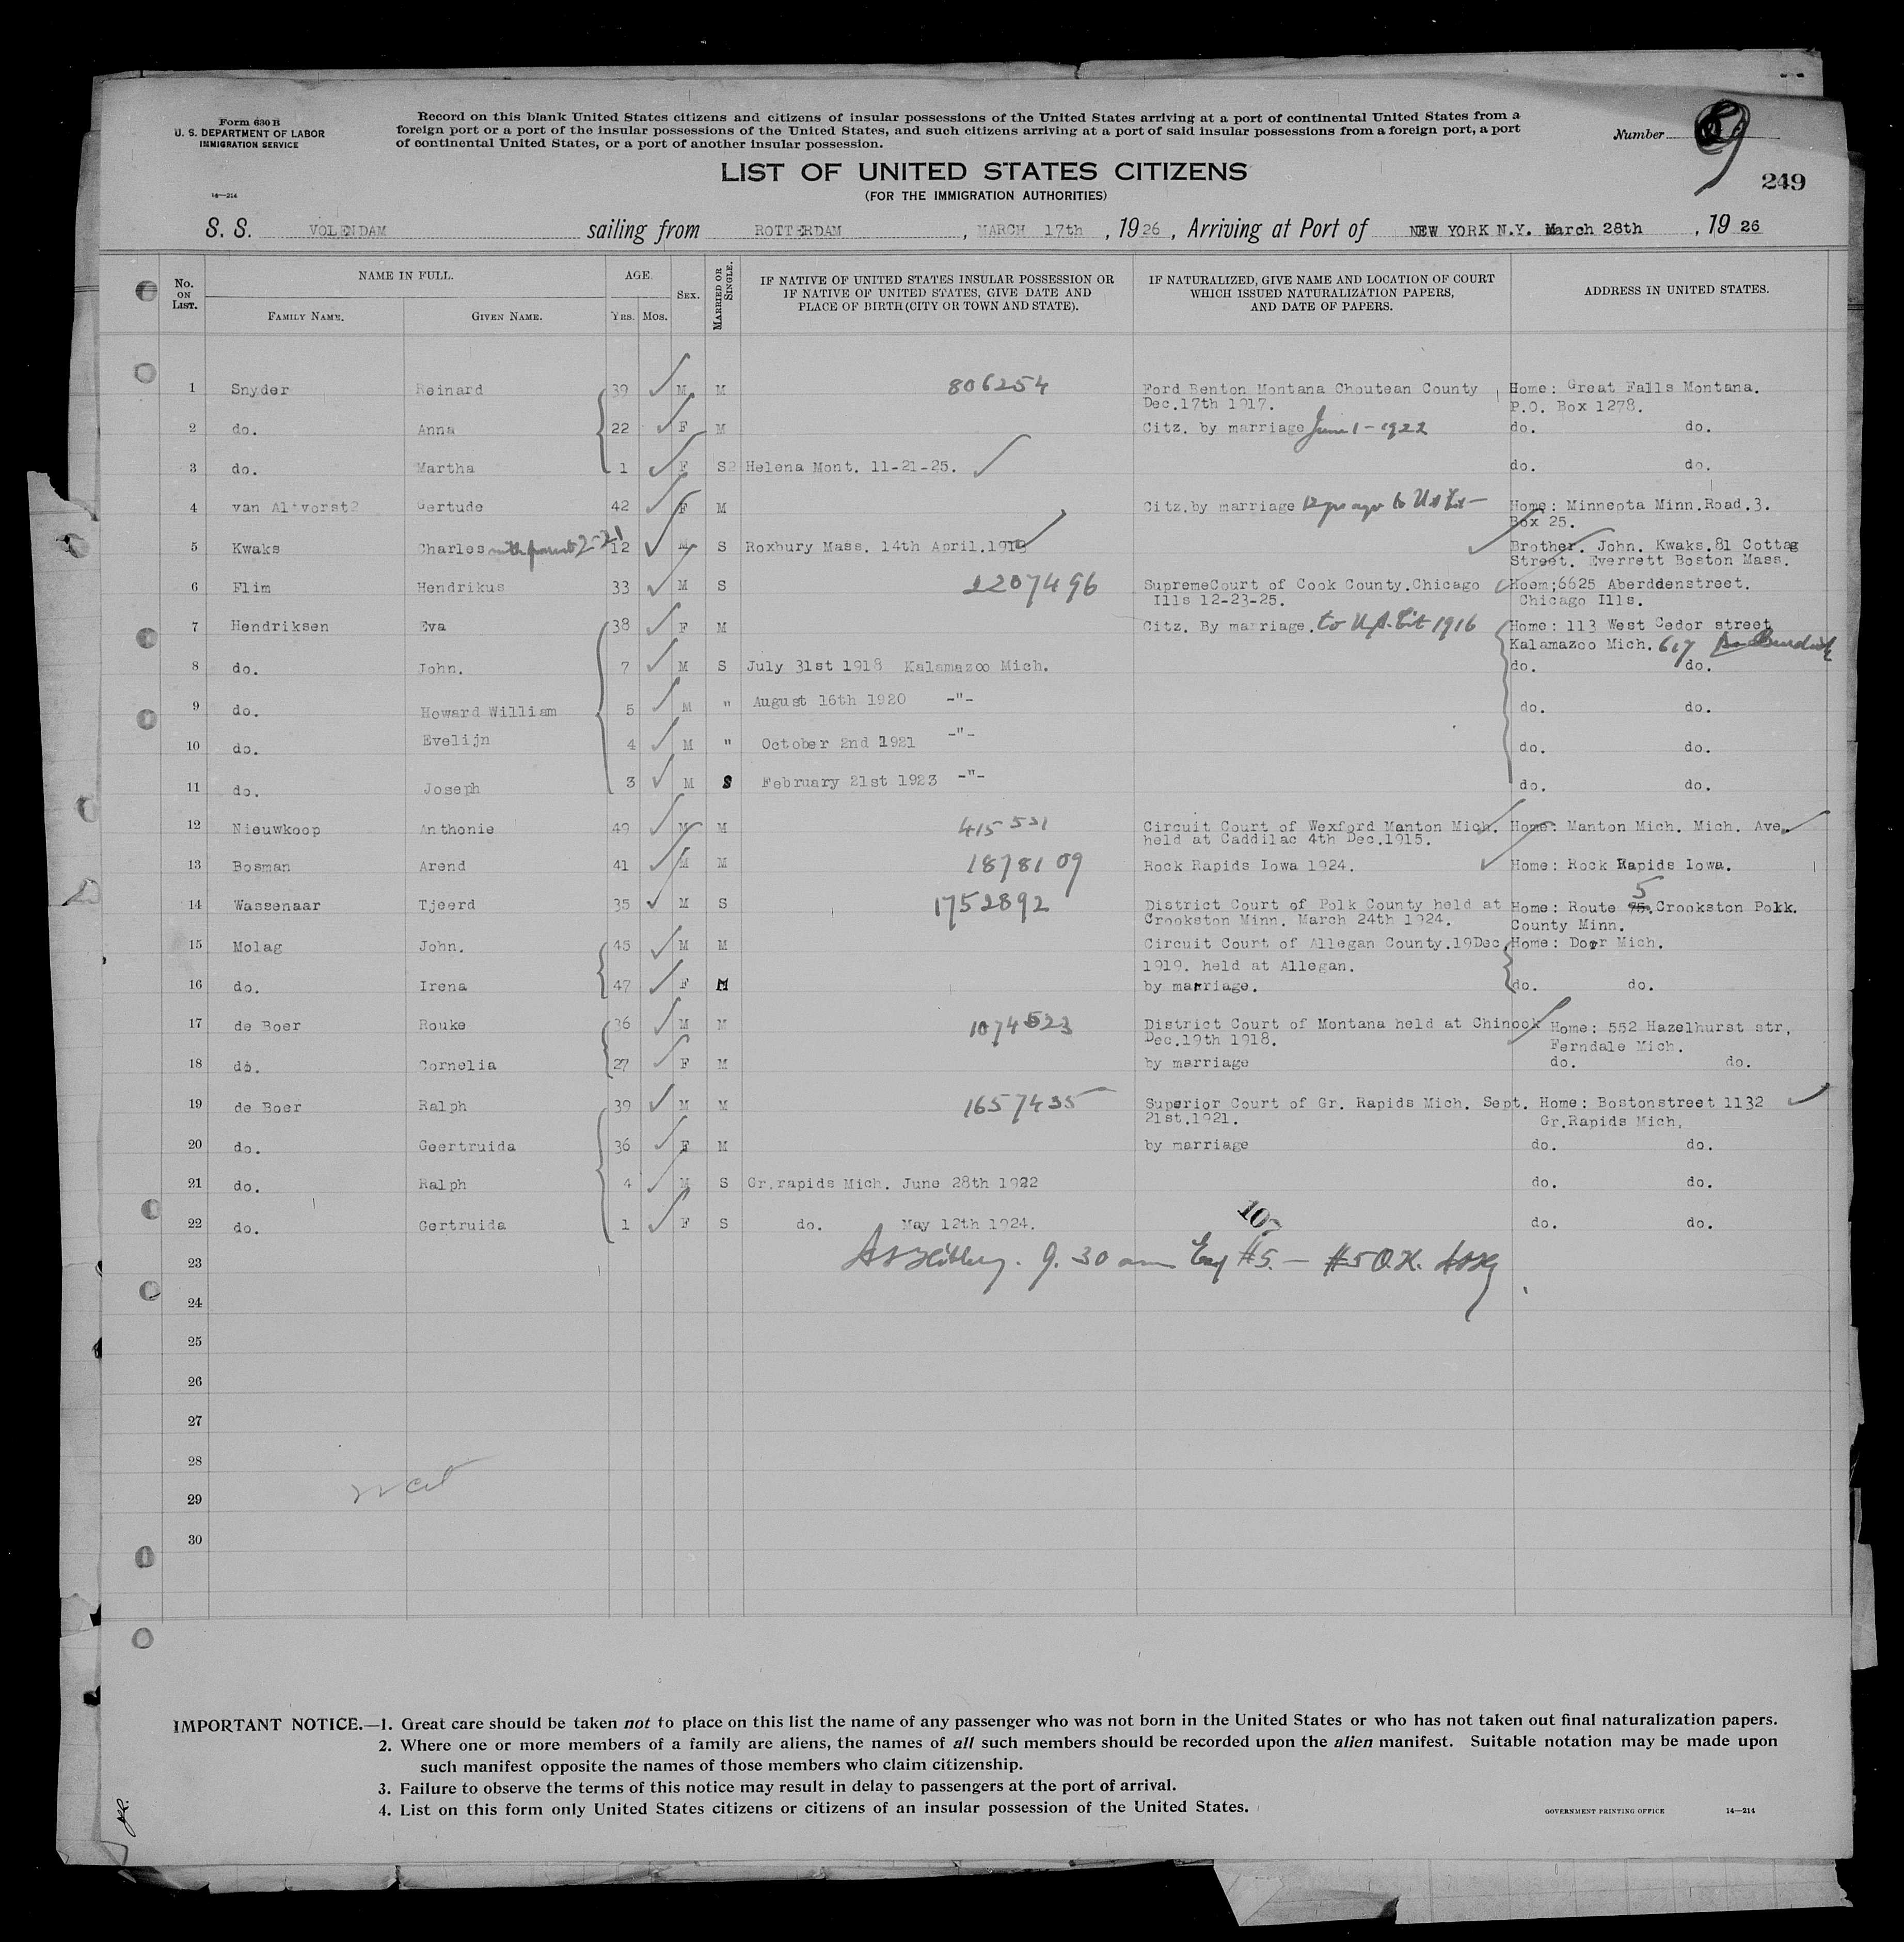 Form 630 B
U. S. DEPARTMENT OF LABOR
IMMIGRATION SERVICE
14—214
Record on this blank United States citizens and citizens of insular possessions of the United States arriving at a port of continental United States from a
foreign port or a port of the insular possessions of the United States, and such citizens arriving at a port of said insular possessions from a foreign port, a port
of continental United States, or a port of another insular possession.
Number 9
LIST OF UNITED STATES CITIZENS
(FOR THE IMMIGRATION AUTHORITIES)
249
S. S. VOLENDAM sailing from ROTTERDAM , MARCH 17th , 1926 , Arriving at Port of NEW YORK N.Y. March 28th , 1926
No. ON LIST. NAME IN FULL. FAMILY NAME. GIVEN NAME. AGE. YRS. MOS. SEX. MARRIED OR SINGLE. IF NATIVE OF UNITED STATES INSULAR POSSESSION OR IF NATIVE OF UNITED STATES, GIVE DATE AND PLACE OF BIRTH (CITY OR TOWN AND STATE). IF NATURALIZED, GIVE NAME AND LOCATION OF COURT WHICH ISSUED NATURALIZATION PAPERS, AND DATE OF PAPERS. ADDRESS IN UNITED STATES.
1 Snyder Reinard 39 M M 806254 Ford Benton Montana Choutean County Home: Great Falls Montana.
Dec.17th 1917. P.O. Box 1278.
2 do. Anna 22 F M Citz. by marriage June 1 - 1922 do. do.
3 do. Martha 1 F S Helena Mont. 11-21-25. do. do.
4 van Altvorst Gertude 42 F M Citz.by marriage 12 yrs ago to Home: Minneota Minn.Road.3.
Box 25.
5 Kwaks Charles with parents 12 M S Roxbury Mass. 14th April.1913 Brother. John. Kwaks.81 Cottag
Street. Everrett Boston Mass.
6 Flim Hendrikus 33 M S 2207496 SupremeCourt of Cook County.Chicago Hoem;6625 Aberddenstreet.
Ills 12-23-25. Chicago Ills.
7 Hendriksen Eva 38 F M Citz. By marriage. to U.S. Cit 1916 Home: 113 West Cedor street
Kalamazoo Mich. 617
8 do. John. 7 M S July 31st 1918 Kalamazoo Mich. do. do.
9 do. Howard William 5 M " August 16th 1920 -"- do. do.
10 do. Evelijn 4 M " October 2nd 1921 -"- do. do.
11 do. Joseph 3 M S February 21st 1923 -"- do. do.
12 Nieuwkoop Anthonie 49 M M 415531 Circuit Court of Wexford Manton Mich. Home: Manton Mich. Mich. Ave.
held at Caddilac 4th Dec.1915.
13 Bosman Arend 41 M M 1878109 Rock Rapids Iowa 1924. Home: Rock Rapids Iowa.
14 Wassenaar Tjeerd 35 M S 1752892 District Court of Polk County held at Home: Route 5 Crookston Polk.
Crookston Minn. March 24th 1924. County Minn.
15 Molag John. 45 M M Circuit Court of Allegan County.19Dec. Home: Dorr Mich.
1919. held at Allegan.
16 do. Irena 47 F M by marriage. do. do.
17 de Boer Rouke 36 M M 1074523 District Court of Montana held at Chinook Home: 552 Hazelhurst str,
Dec.19th 1918. Ferndale Mich.
18 do. Cornelia 27 F M by marriage do. do.
19 de Boer Ralph 39 M M 1657435 Superior Court of Gr. Rapids Mich. Sept. Home: Bostonstreet 1132
21st.1921. Gr.Rapids Mich,
20 do. Geertruida 36 F M by marriage do. do.
21 do. Ralph 4 M S Gr.rapids Mich. June 28th 1922 do. do.
22 do. Gertruida 1 F S do. May 12th 1924. do. do.
107
23 9.30 am #5. — #5 O.K.
24
25
26
27
28
29
30
IMPORTANT NOTICE.—1. Great care should be taken not to place on this list the name of any passenger who was not born in the United States or who has not taken out final naturalization papers.
2. Where one or more members of a family are aliens, the names of all such members should be recorded upon the alien manifest. Suitable notation may be made upon
such manifest opposite the names of those members who claim citizenship.
3. Failure to observe the terms of this notice may result in delay to passengers at the port of arrival.
4. List on this form only United States citizens or citizens of an insular possession of the United States.
GOVERNMENT PRINTING OFFICE 14—214